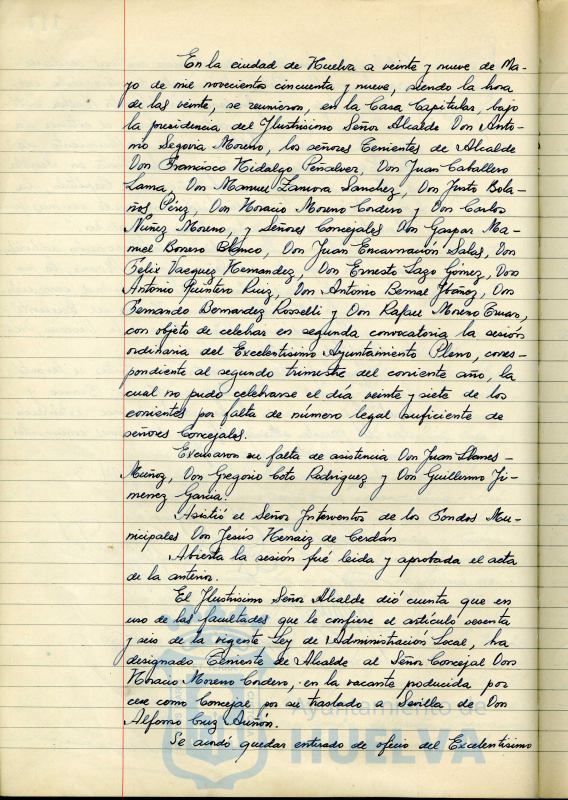 En la ciudad de Huelva a veinte y nueve de Ma-
yo de mil novecientos cincuenta y nueve, siendo la hora
de las veinte, se reunieron, en la Casa Capitular, bajo
la presidencia del Ilustrísimo Señor Alcalde Don Anto-
nio Segovia Moreno, los señores Tenientes de Alcalde
Don Francisco Hidalgo Peñalver, Don Juan Caballero
Lama, Don Manuel Zamora Sanchez, Don Justo Bola-
ños Pérez, Don Horacio Moreno Cordero y Don Carlos
Nuñez Moreno, y Señores Concejales Don Gaspar Ma-
nuel Borrero Blanco, Don Juan Encarnación Salas, Don
Félix Vazquez Hernandez, Don Ernesto Lazo Gómez, Don
Antonio Quintero Ruiz, Don Antonio Bernal Ibañez, Don
Fernando Bernardez Rosselli y Don Rafael Moreno
con objeto de celebrar en segunda convocatoria la sesión
ordinaria del Excelentísimo Ayuntamiento Pleno, corres-
pondiente al segundo trimestre del corriente año, la
cual no pudo celebrarse el día veinte y siete de los
corrientes por falta de número legal suficiente de
señores Concejales.
Excusaron su falta de asistencia Don Juan Llanes-
Muñoz, Don Gregorio Coto Rodriguez y Don Guillermo Ji-
menez Garcia.
Asistió el Señor Interventor de los Fondos Mu-
nicipales Don Jesús Hernaiz de Cerdán
Abierta la sesión fué leida y aprobada el acta
de la anterior.
El Ilustrísimo Señor Alcalde dió cuenta que en
uso de las facultades que le confiere el articulo sesenta
y seis de la vigente Ley de Administración Local, ha
designado Teniente de Alcalde al Señor Concejal Don
Horacio Moreno Cordero, en la vacante producida por
cese como Concejal por su traslado a Sevilla de Don
Alfonso Cruz Auñón.
Se acordó quedar enterado de oficio del Excelentísimo
Ayuntamiento de
HUELVA